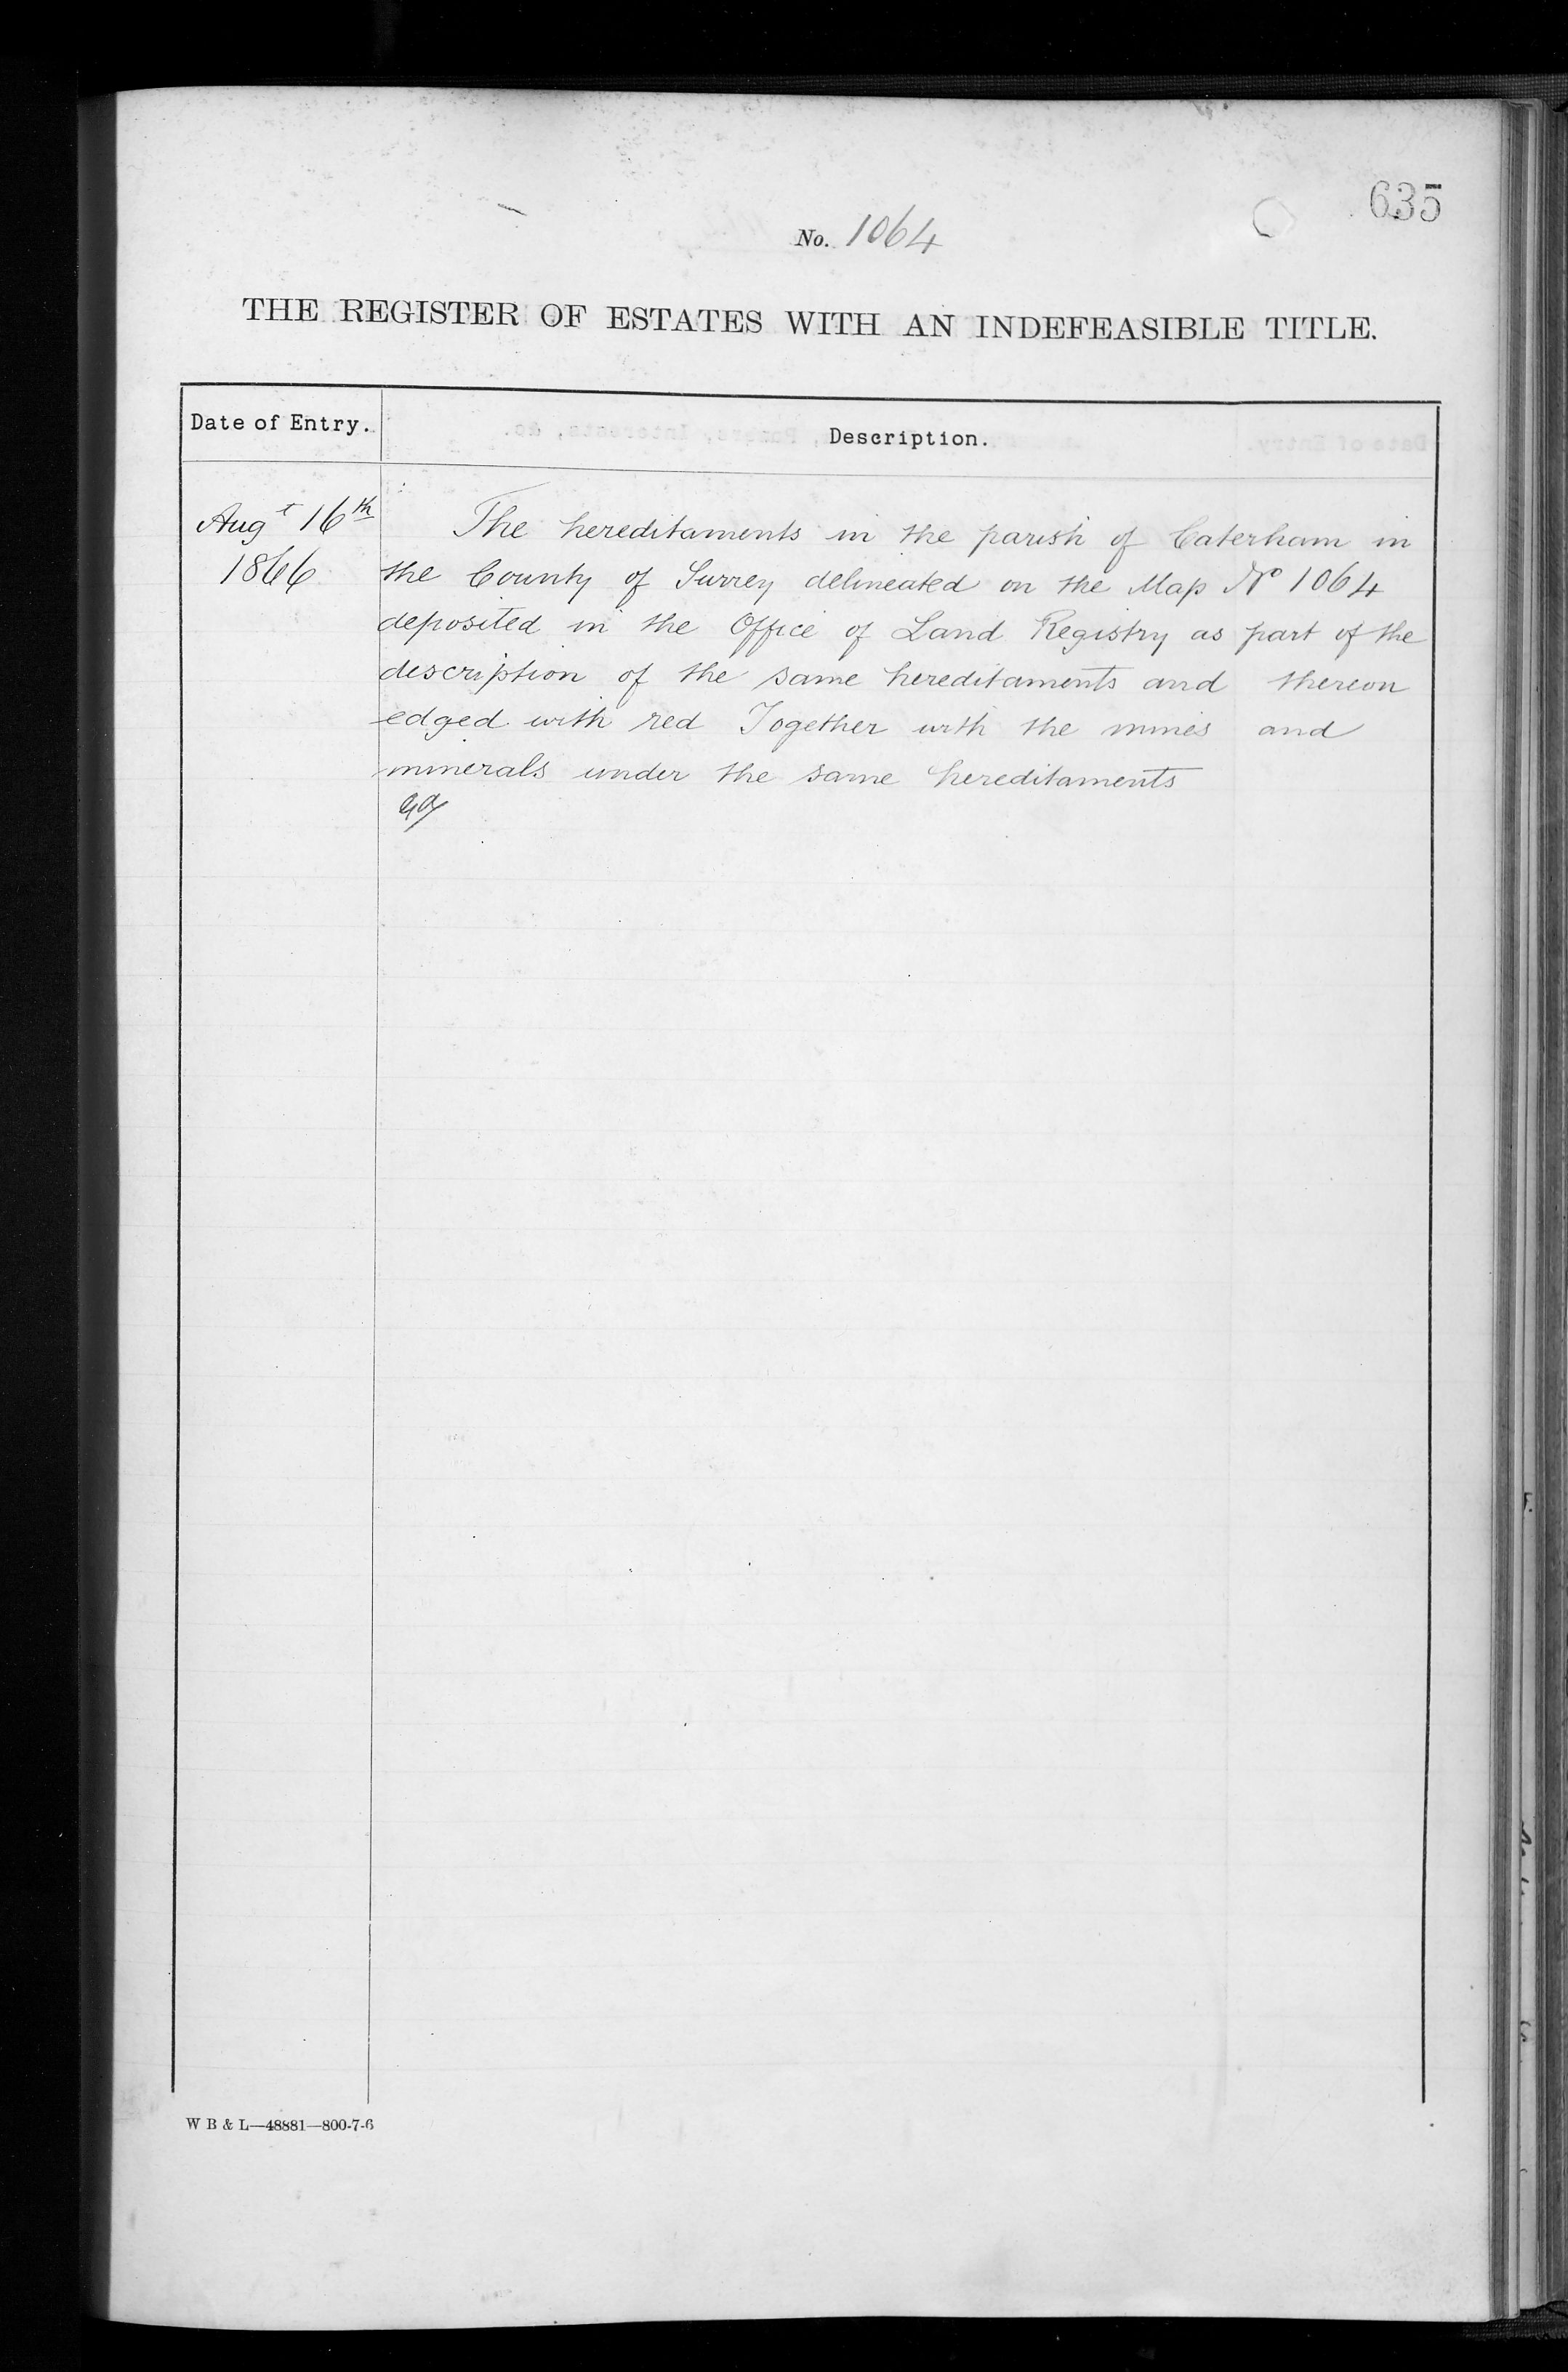 635
No. 1064
THE REGISTER OF ESTATES WITH AN INDEFEASIBLE TITLE.
Date of Entry.
Description.
Augt 16th
1866
The hereditaments in the parish of Caterham in
the County of Surrey delineated on the Map No 1064
deposited in the Office of Land Registry as part of the
description of the same hereditaments and thereon
edged with red Together with the mines and
minerals under the same hereditaments
W B & L—48881—800-7-6